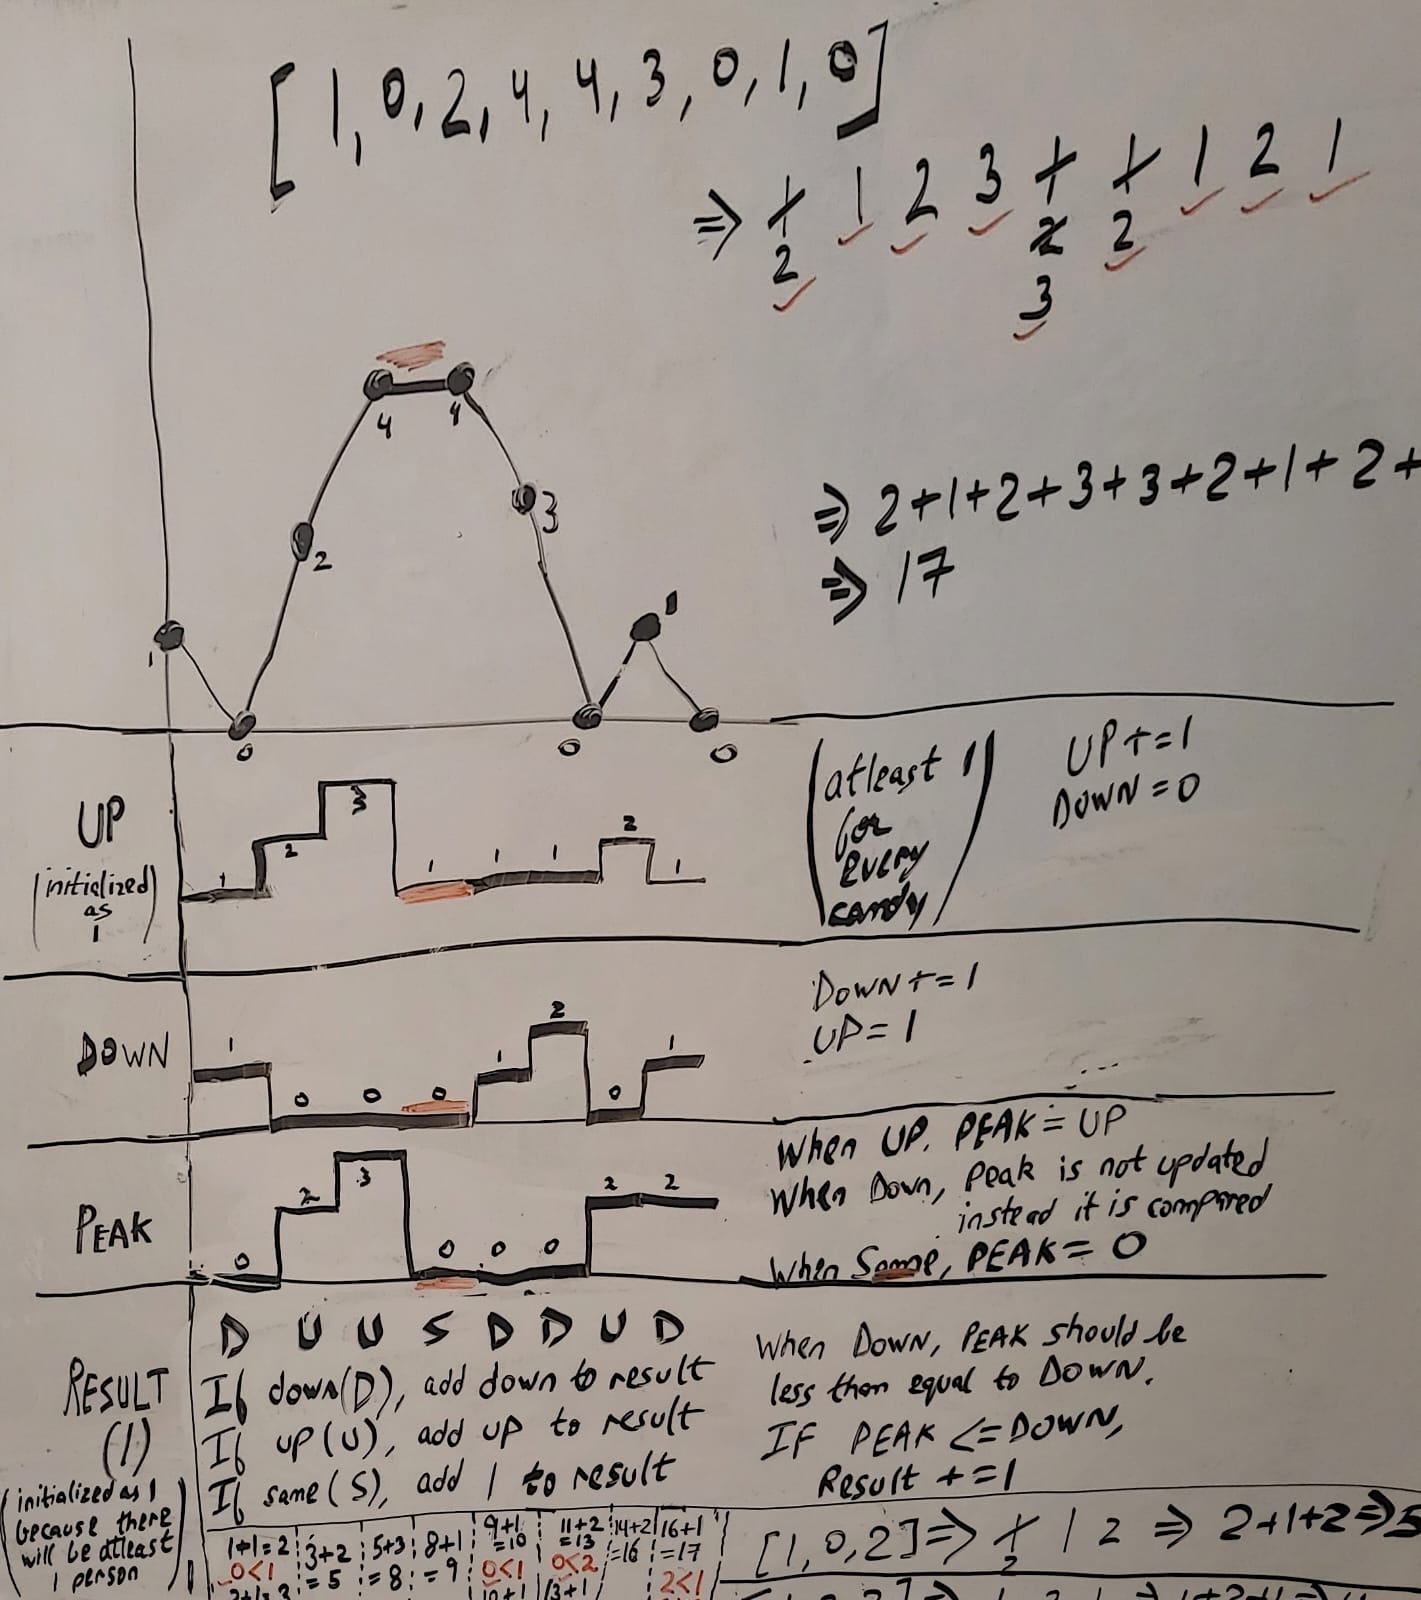 [1, 0, 2, 4, 4, 3, 0, 1, 0]
⇒ 1 1 2 3 1 1 1 2 1
2 2 2
3
4 4
2
3
1
1
0
0
0
⇒ 2+1+2+3+3+2+1+2+
⇒ 17
UP
(initialized
as
1)
1 2 3 1 1 1 2 1
(atleast 1
for
every
candy)
UP += 1
DOWN = 0
DOWN
1 0 0 0 1 2 0 1
DOWN += 1
UP = 1
PEAK
0 2 3 0 0 0 2 2
When UP, PEAK = UP
When Down, Peak is not updated
instead it is compared
When Same, PEAK = 0
D U U S D D U D
RESULT
(1)
(initialized as 1
because there
will be atleast
1 person)
If down(D), add down to result
If up(U), add up to result
If same(S), add 1 to result
When Down, PEAK should be
less than equal to Down.
IF PEAK <= DOWN,
Result += 1
1+1=2 3+2 5+3 8+1 9+1 11+2 14+2 16+1
0<1 =5 =8 =9 =10 =13 =16 =17
0<1 0<2 2<1
[1,0,2] ⇒ 1 1 2 ⇒ 2+1+2 ⇒ 5
2